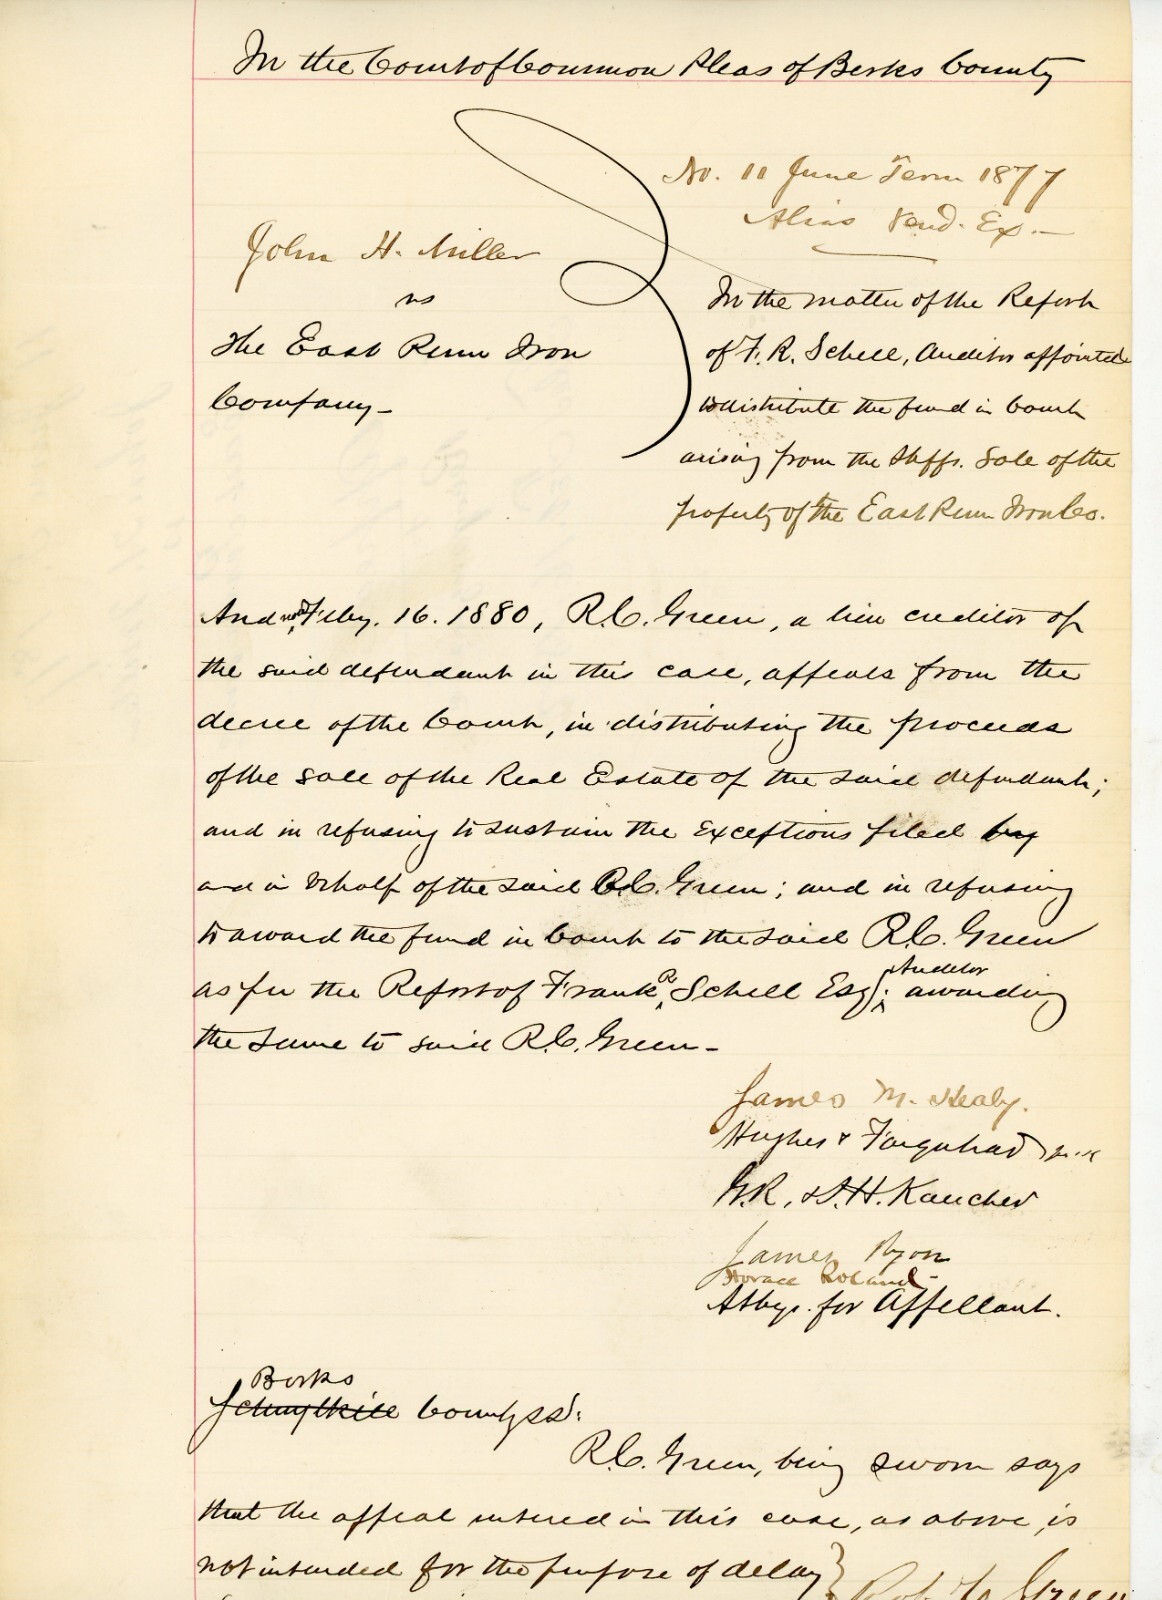 In the Court of Common Pleas of Berks County
No. 11 June Term 1877
Alias Vend. Ex.—
John H. Miller
vs
The East Penn Iron
Company—
In the matter of the Report
of F. R. Schell, Auditor appointed
to distribute the fund in Court
arising from the Shffs. Sale of the
property of the East Penn Iron Co.
And now, Feby. 16. 1880, R. C. Green, a lien creditor of
the said defendant in this case, appeals from the
decree of the Court, in distributing the proceeds
of the sale of the Real Estate of the said defendant;
and in refusing to sustain the Exceptions filed by
and in behalf of the said R. C. Green; and in refusing
to award the fund in Court to the said R. C. Green
as per the Report of Frank R. Schell Esq; Auditor awarding
the same to said R. C. Green—
James M. Healy.
Hughes & Farquhar
G. R. & D. H. Kaucher
James Ryon
Horace Roland
Attys. for Appellant.
Berks
Schuylkill County ss:
R. C. Green, being sworn says
that the appeal entered in this case, as above, is
not intended for the purpose of delay
Robt C Green